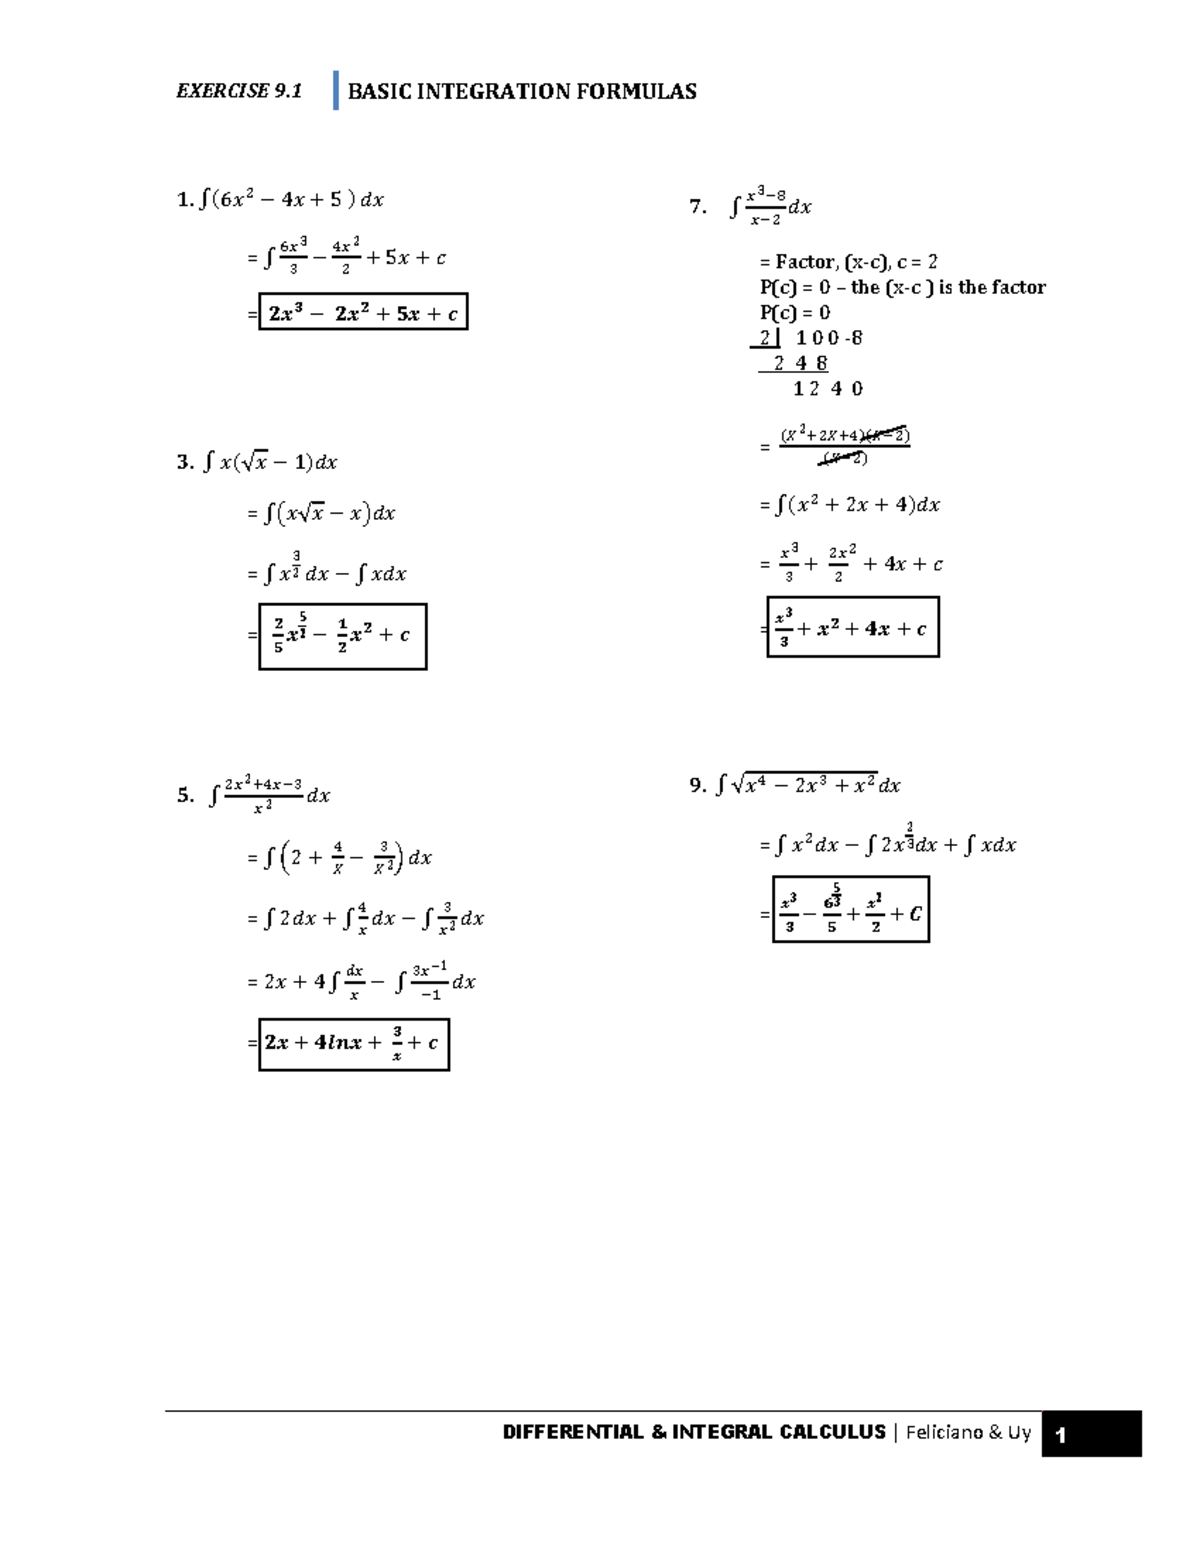 EXERCISE 9.1 BASIC INTEGRATION FORMULAS
1. ∫(6x² − 4x + 5 ) dx
= ∫ 6x³/3 − 4x²/2 + 5x + c
= 2x³ − 2x² + 5x + c
3. ∫ x(√x − 1)dx
= ∫(x√x − x)dx
= ∫ x^(3/2) dx − ∫ xdx
= 2/5 x^(5/2) − 1/2 x² + c
5. ∫ (2x²+4x−3)/x² dx
= ∫(2 + 4/X − 3/X²) dx
= ∫ 2dx + ∫ 4/x dx − ∫ 3/x² dx
= 2x + 4 ∫ dx/x − ∫ 3x⁻¹/−1 dx
= 2x + 4lnx + 3/x + c
7. ∫ (x³−8)/(x−2) dx
= Factor, (x-c), c = 2
P(c) = 0 – the (x-c ) is the factor
P(c) = 0
2| 1 0 0 -8
2 4 8
1 2 4 0
= (X²+2X+4)(X−2)/(X−2)
= ∫(x² + 2x + 4)dx
= x³/3 + 2x²/2 + 4x + c
= x³/3 + x² + 4x + c
9. ∫ √(x⁴ − 2x³ + x²) dx
= ∫ x² dx − ∫ 2x^(2/3) dx + ∫ xdx
= x³/3 − 6^(5/3)/5 + x²/2 + C
DIFFERENTIAL & INTEGRAL CALCULUS | Feliciano & Uy 1